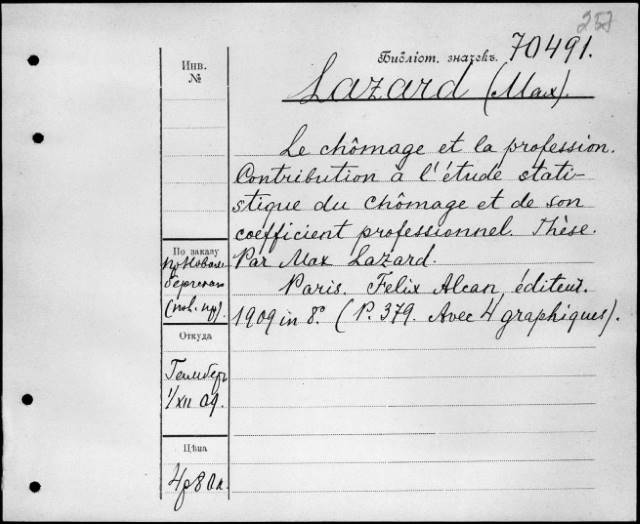 257
Библіот. значекъ. 70491.
Инв.
№
Lazard (Max).
Le chômage et la profession.
Contribution à l'étude stati-
stique du chômage et de son
coefficient professionnel. Thèse.
Par Max Lazard.
Paris. Felix Alcan, éditeur.
1909 in 8º. (P. 379. Avec 4 graphiques).
По заказу
Откуда
1/XII 09.
Цѣна
4р80к